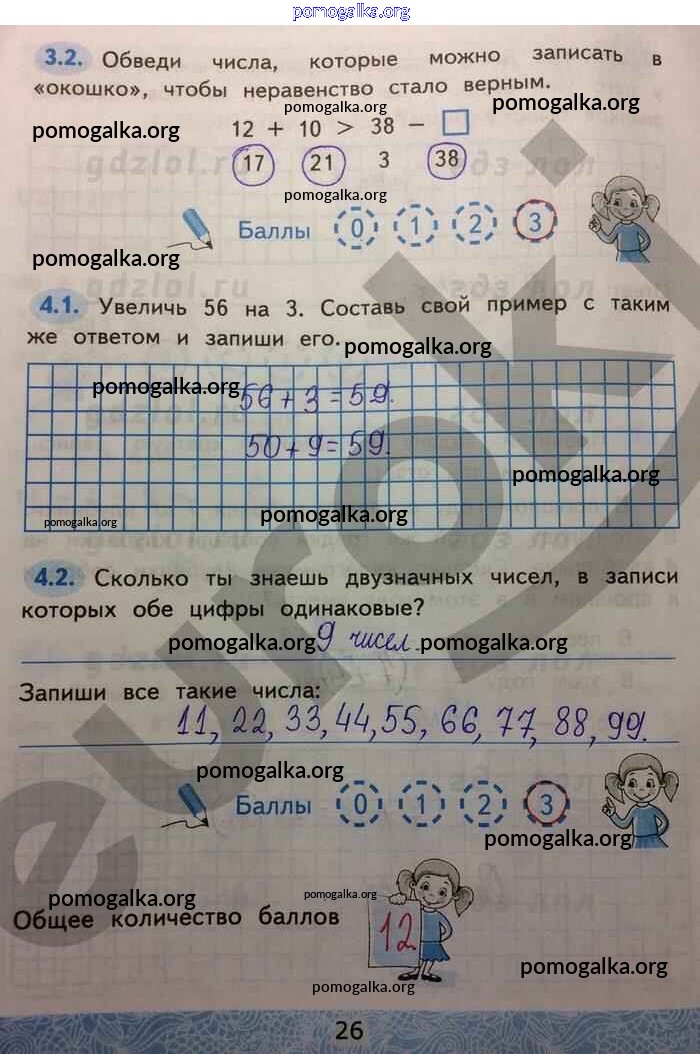 pomogalka.org
3.2. Обведи числа, которые можно записать в
«окошко», чтобы неравенство стало верным.
pomogalka.org
pomogalka.org
pomogalka.org
12 + 10 > 38 −
17 21 3 38
gdzlol.ru
pomogalka.org
Баллы 0 1 2 3
pomogalka.org
gdzlol.ru
4.1. Увеличь 56 на 3. Составь свой пример с таким
же ответом и запиши его.
pomogalka.org
pomogalka.org
56 + 3 = 59.
50 + 9 = 59.
pomogalka.org
pomogalka.org
pomogalka.org
4.2. Сколько ты знаешь двузначных чисел, в записи
которых обе цифры одинаковые?
pomogalka.org 9 чисел. pomogalka.org
Запиши все такие числа:
11, 22, 33, 44, 55, 66, 77, 88, 99.
pomogalka.org
Баллы 0 1 2 3
pomogalka.org
pomogalka.org
pomogalka.org
Общее количество баллов 12
pomogalka.org
pomogalka.org
26
euroki